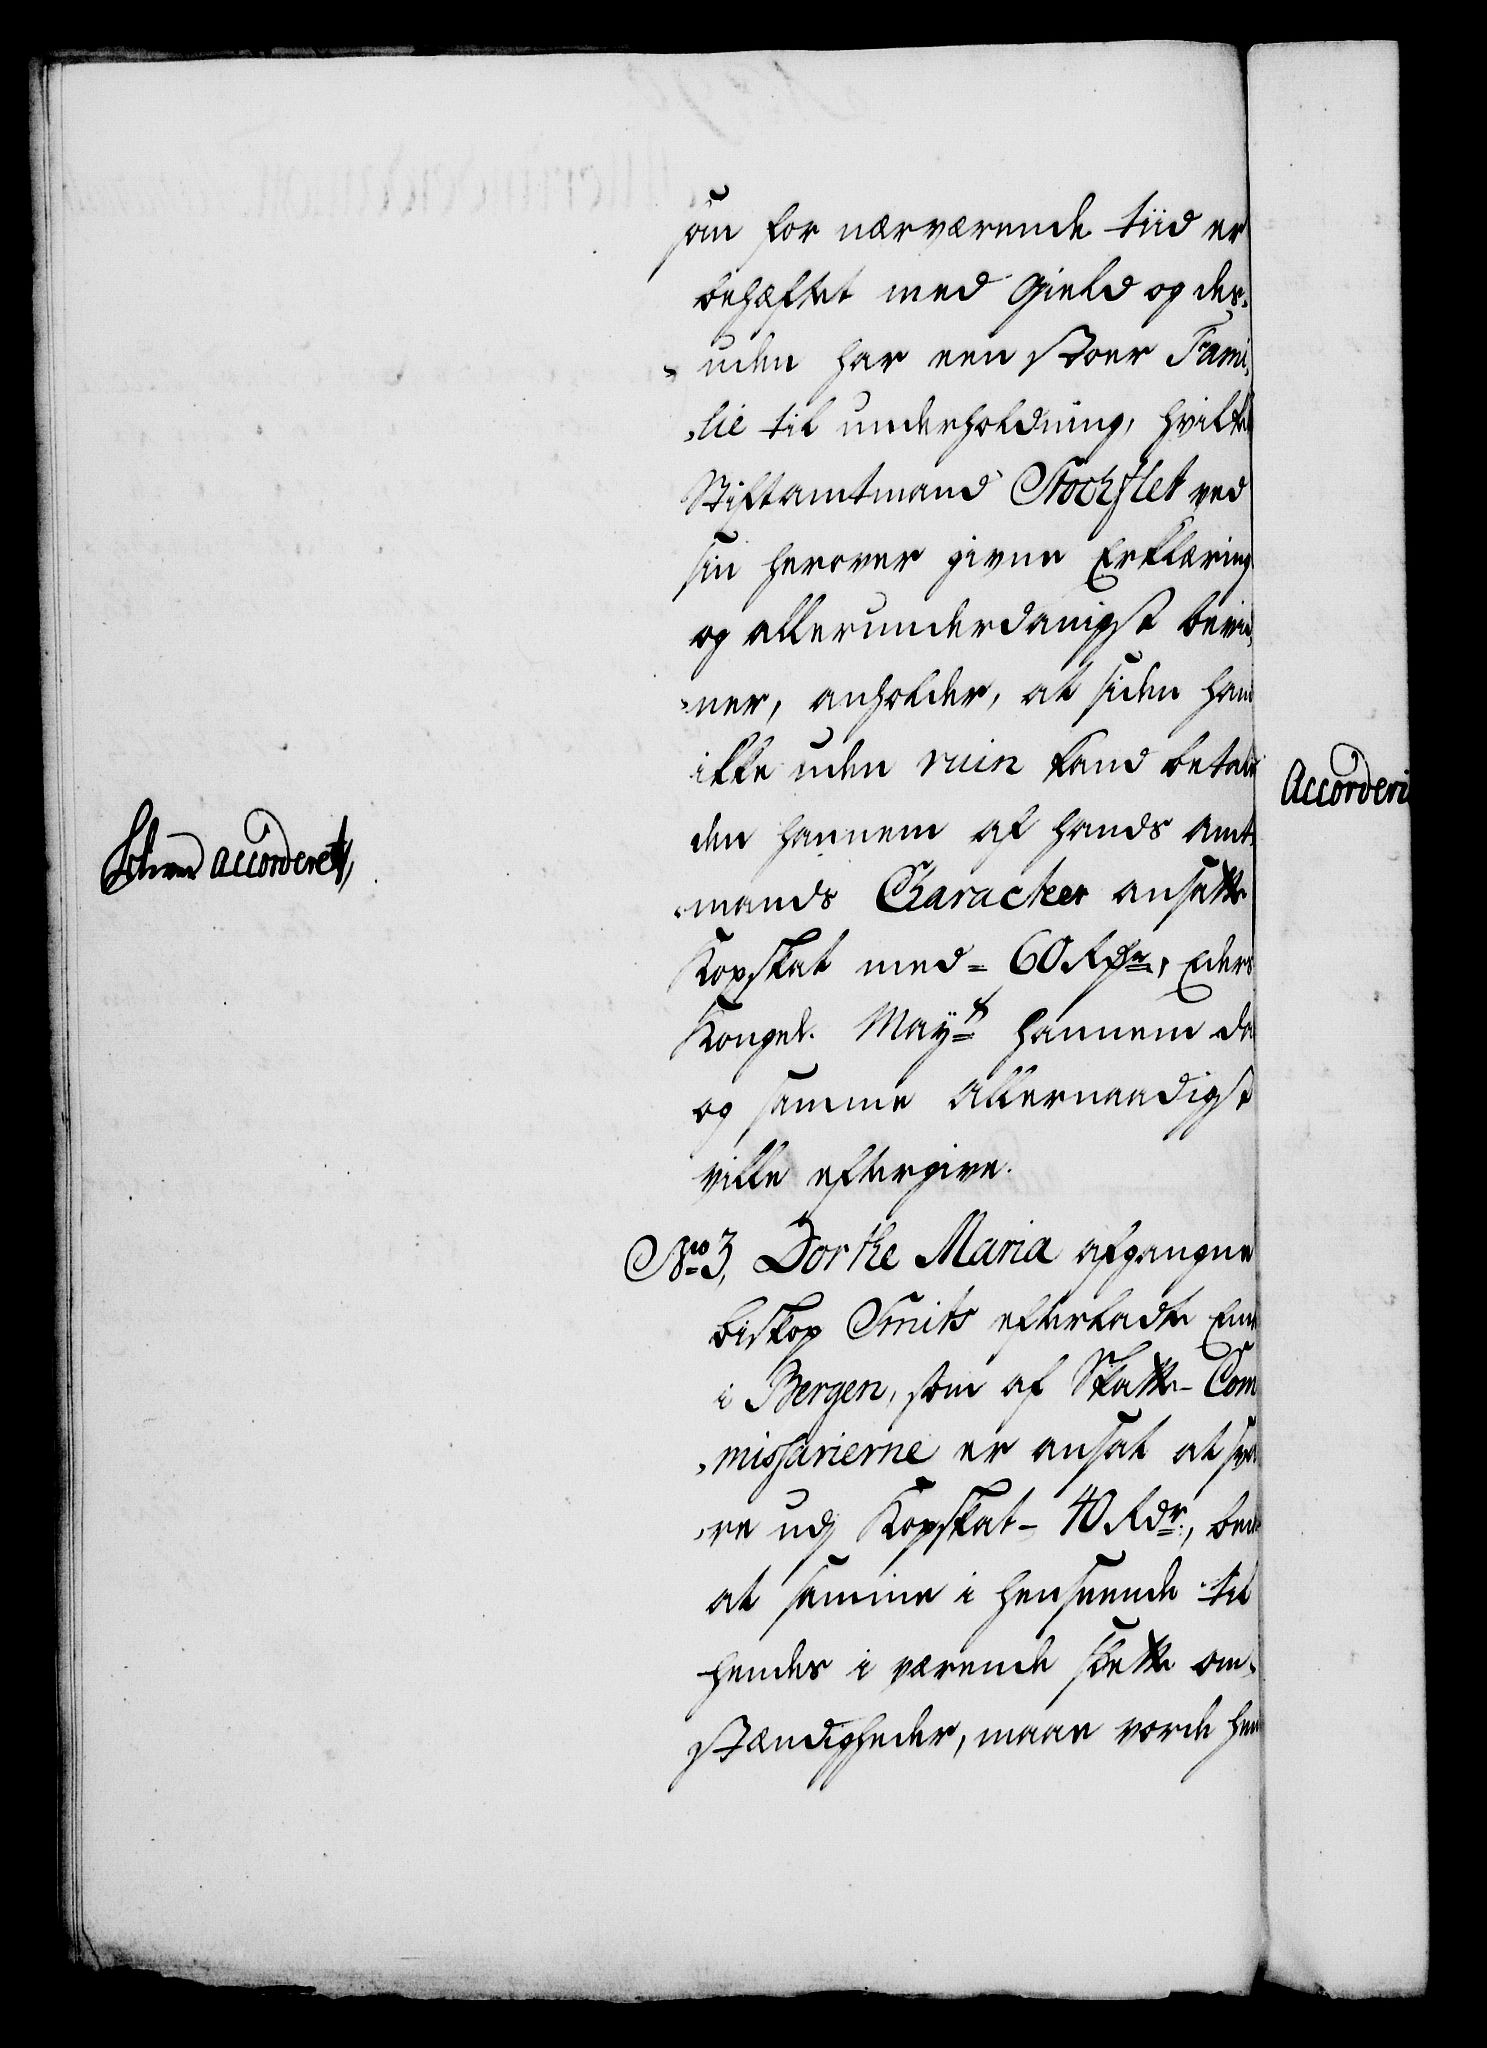 som for nærværende tiid er
behæftet med Gield og des¬
uden har een stoer Fami¬
lie til underholdning, hvilket
Stiftamtmand Stochflet ved
sin herover givne Erklæring
og allerunderdanigst bevid¬
ner, anholder, at siden hand
ikke uden ruin kand betale
den hannem af hands Amt¬
mands Characteer ansatte
Kopskat med = 60 Rdr, Eders
Kongel. Mayt hannem da
og samme Allernaadigst
ville eftergive.
No 3, Dorthe Maria afgangne
biskop Smits efterladte Enke
i Bergen, som af Skatte- Com
missarierne er ansat at sva
re udj Kopskat - 40 Rdr, beder
at samme i henseende til
hendes i værende slette om¬
stændigheder, maae vorde hen
accorderet
Accorderi